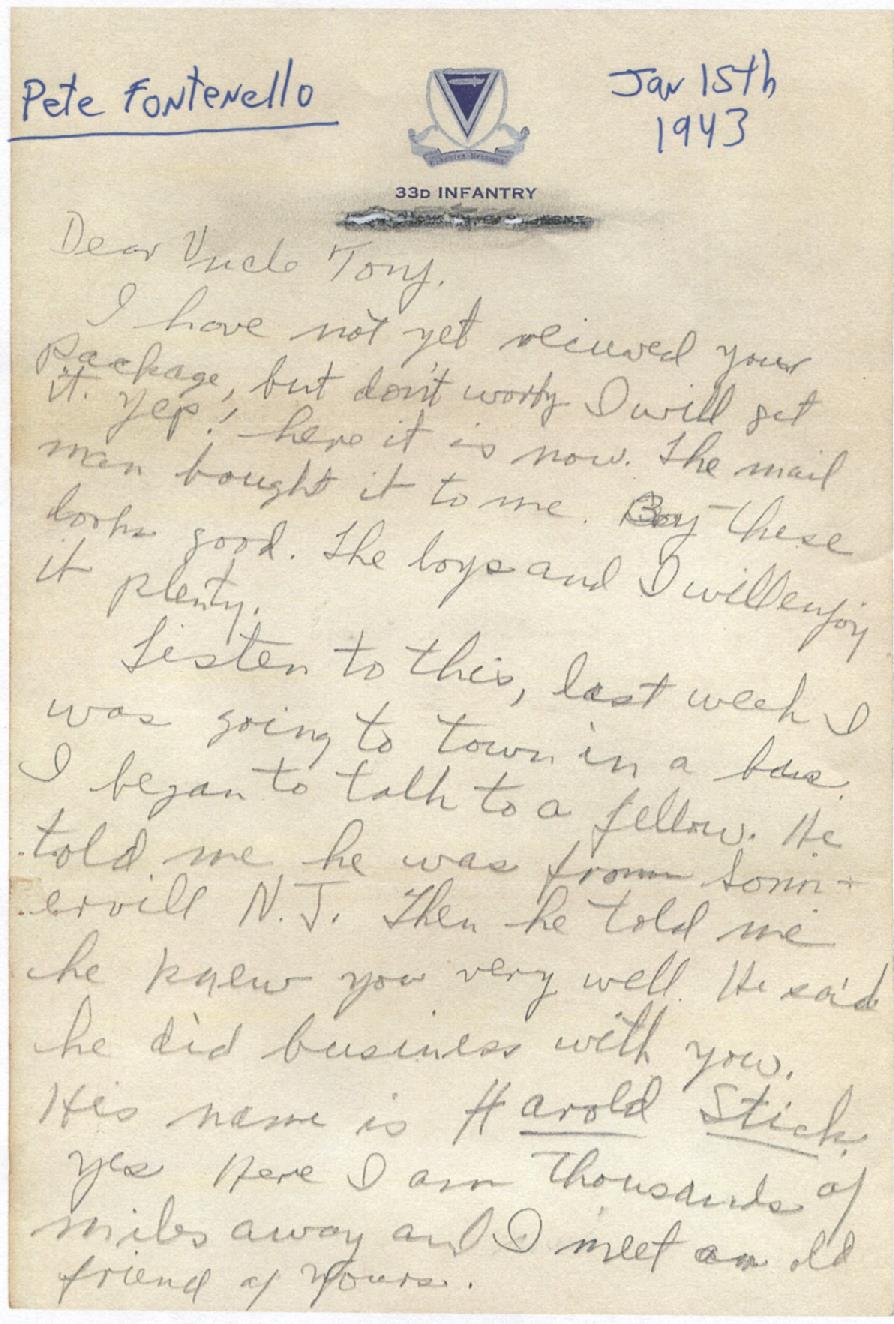 Pete Fontenello
Jan 15th
1943
33D INFANTRY
Dear Uncle Tony,
I have not yet recieved your
package, but don't worry I will get
it. Yep! here it is now. The mail
man bought it to me. Boy these
looks good. The boys and I will enjoy
it plenty.
Listen to this, last week I
was going to town in a bus.
I began to talk to a fellow. He
told me he was from Somm-
ervill N.J. Then he told me
he knew you very well. He said
he did business with you.
His name is Harold Stick.
yes Here I am thousands of
miles away and I meet an old
friend of yours.